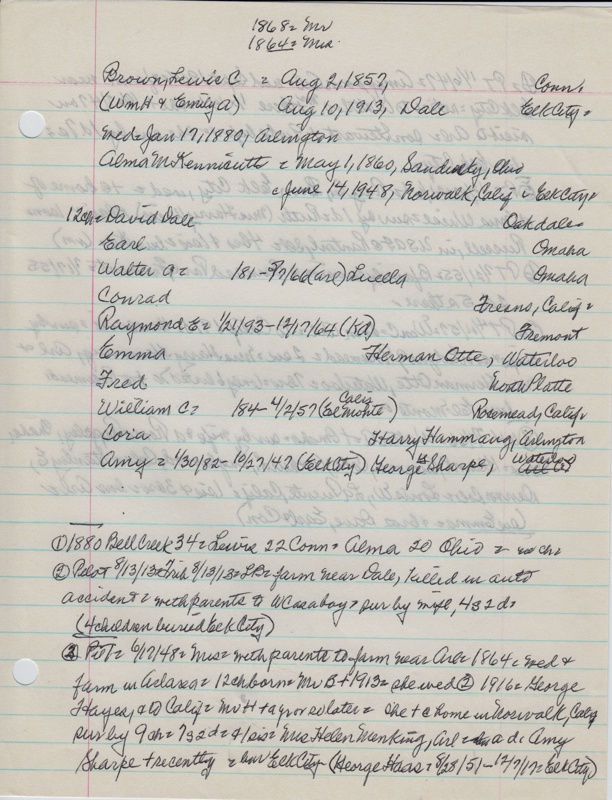 1868 = Mr
1864 = Mrs.
Brown, Lewis C = Aug 2, 1857, Conn.
(Wm H & Emily A) Aug 10, 1913, Dale Elk City =
wed = Jan 17, 1880, Arlington
Alma McKennicuth = May 1, 1860, Sandusky, Ohio
June 14, 1948, Norwalk, Calif = Elk City
12 ch = David Dale Oakdale =
Earl Omaha
Walter A = 181 - 9/7/66 (Arl) Luella Omaha
Conrad Fresno, Calif =
Raymond E = 1/21/93 - 12/17/64 Fremont
Emma Herman Otte, Waterloo
Fred North Platte
William C = 184 - 4/2/57 (El Monte Calif) Rosemead, Calif =
Cora Harry Hammang, Arlington
Amy = 1/30/82 - 10/27/47 (Elk City) George W Sharpe, Waterloo
① 1880 Bell Creek 34 = Lewis 22 Conn = Alma 20 Ohio = no ch
② Pilot 8/13/13 & Trib 8/13/13 = farm near Dale, killed in auto
accident = with parents to W = sur by wife, 4 s 2 d =
(4 children buried Elk City)
③ P&T = 6/17/48 = Mrs = with parents to farm near Arl = 1864 = wed &
farm in = 12 ch born = Mr B + 1913 = she wed ② 1916 = George
Hayes, & to Calif = Mr H + later = she + c home in Norwalk, Calif
sur by 9 ch = 7 s 2 d = & sis = Mrs Helen Menking, Arl = a d = Amy
Sharpe + recently = bur Elk City (George Haas = 8/28/51 - 12/7/17 = Elk City)